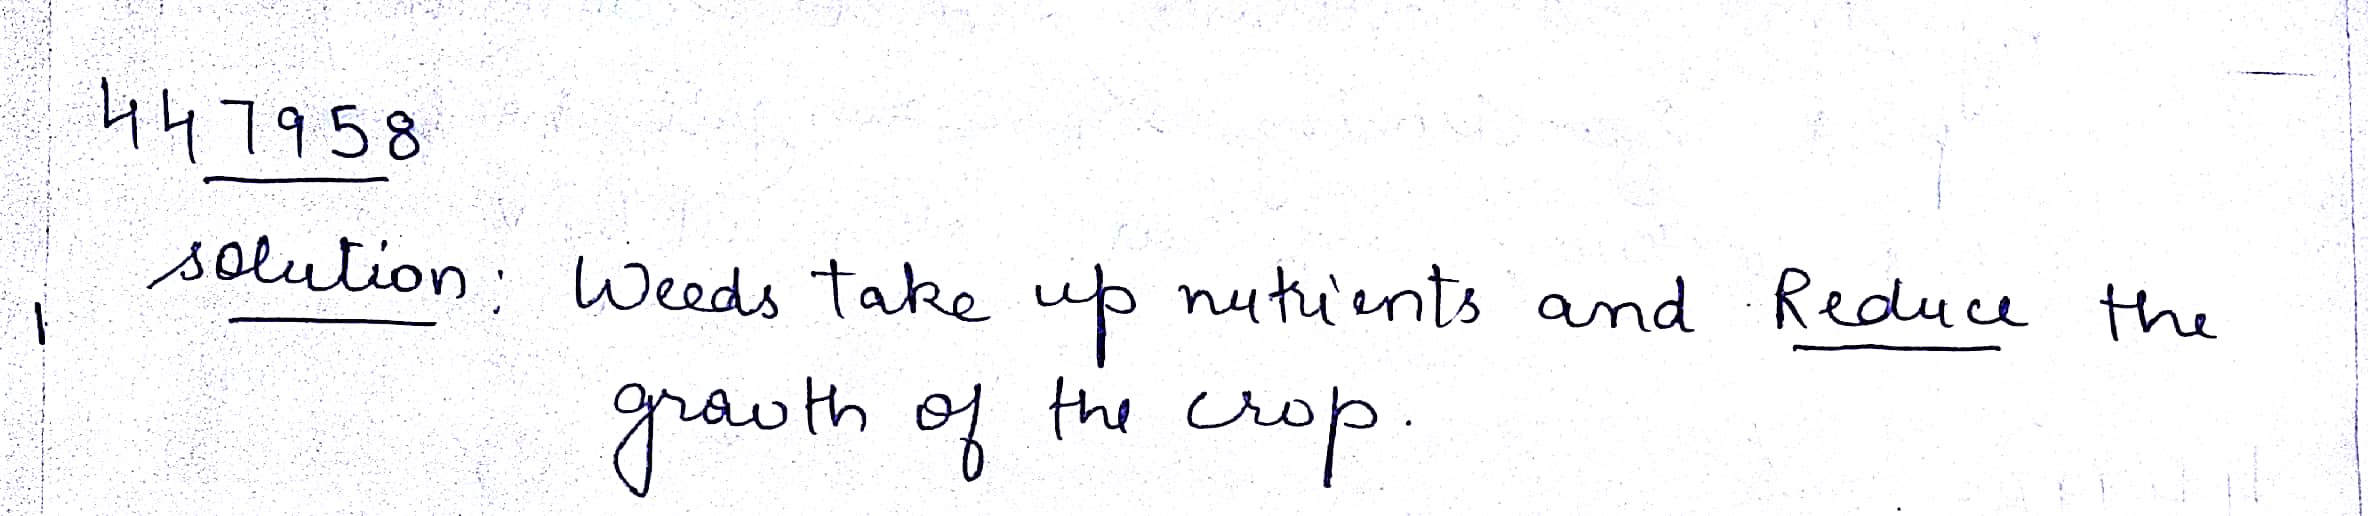 447958
solution: Weeds take up nutrients and Reduce the
growth of the crop.